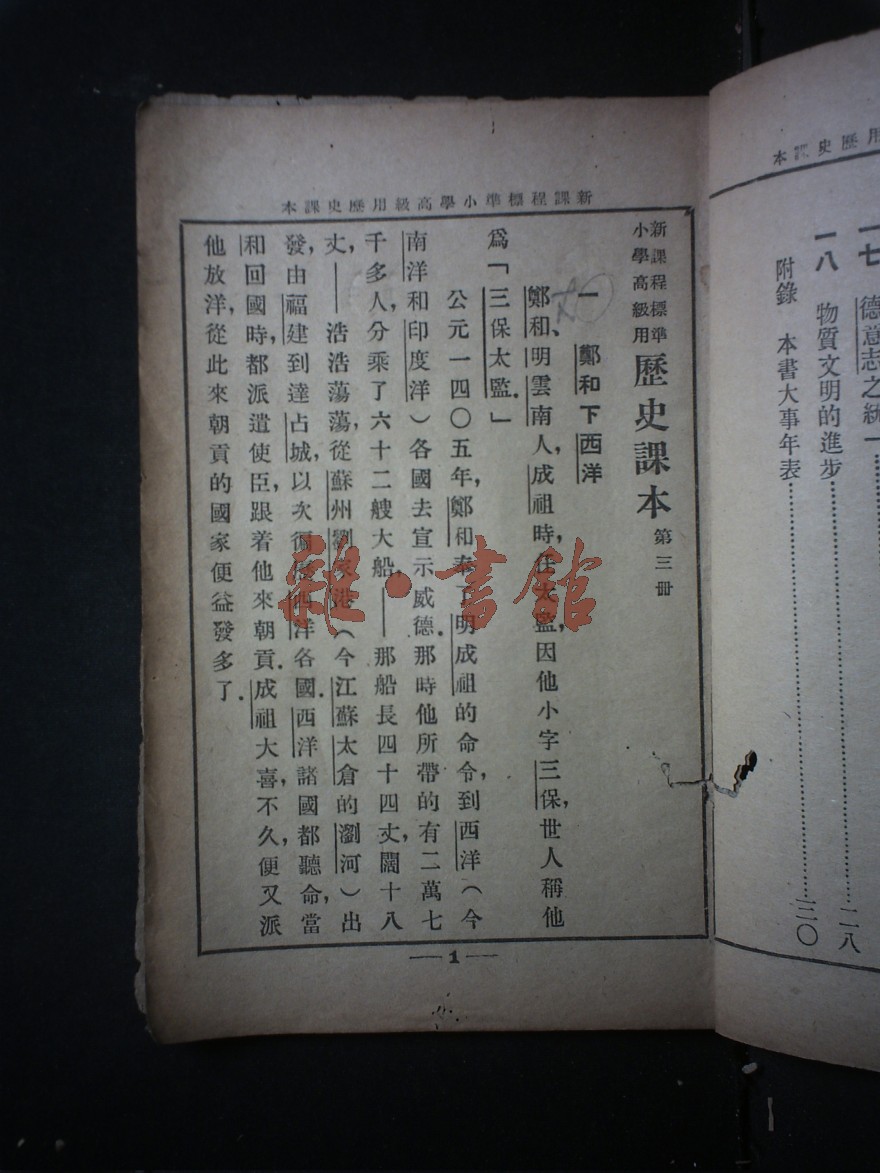 本課史歷用級高學小準標程課新
新課程標準
小學高級用
歷史課本 第三冊
一 鄭和下西洋
鄭和、明雲南人，成祖時，任太監，因他小字三保，世人稱他
爲「三保太監．」
公元一四〇五年，鄭和奉了明成祖的命令，到西洋（今
南洋和印度洋）各國去宣示威德．那時他所帶的有二萬七
千多人，分乘了六十二艘大船，——那船長四十四丈，闊十八
丈，——浩浩蕩蕩，從蘇州劉家港（今江蘇太倉的瀏河）出
發，由福建到達占城，以次徧歷西洋各國．西洋諸國都聽命，當
和回國時，都派遣使臣，跟着他來朝貢．成祖大喜，不久，便又派
他放洋，從此來朝貢的國家便益發多了．
—1—
雜·書館
本課史歷用
一七 德意志之統一
一八 物質文明的進步……二八
附錄 本書大事年表……三〇